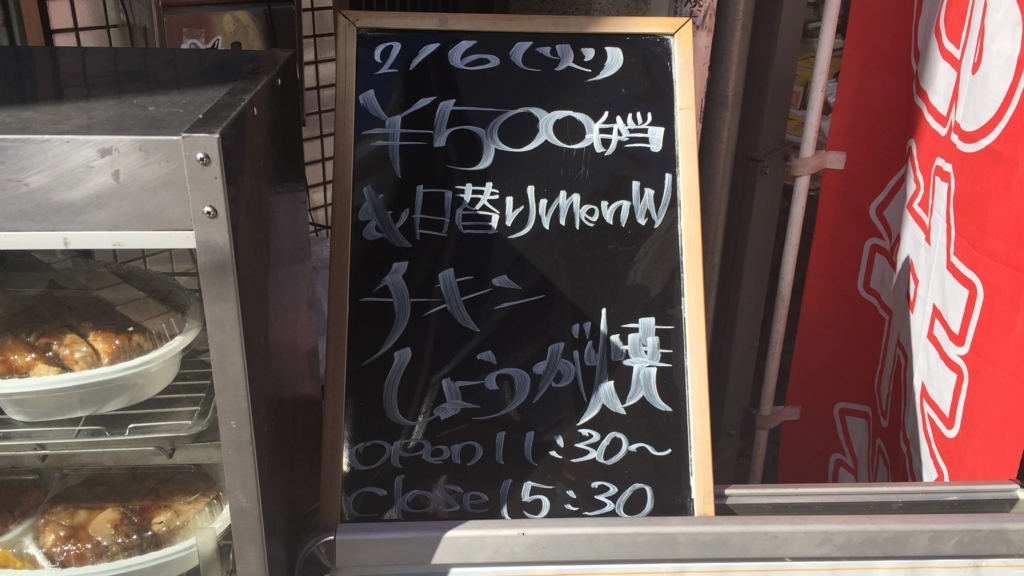 2/6(火)
¥500弁当
& 日替りMenu
チキン
しょうが焼
open 11:30~
close 15:30